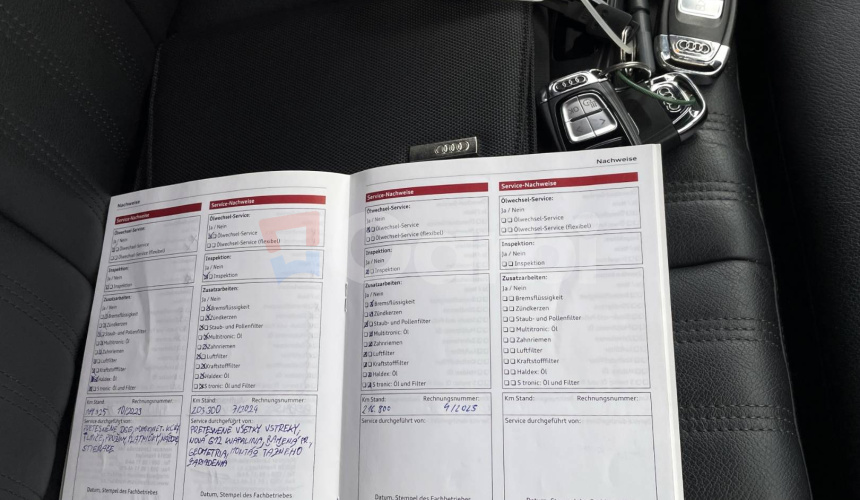 Nachweise
Service-Nachweise
Ölwechsel-Service:
Ja / Nein
Ölwechsel-Service
Ölwechsel-Service (flexibel)
Inspektion:
Ja / Nein
Inspektion
Zusatzarbeiten:
Ja / Nein
Bremsflüssigkeit
Zündkerzen
Staub- und Pollenfilter
Multitronic: Öl
Zahnriemen
Luftfilter
Kraftstofffilter
Haldex: Öl
S tronic: Öl und Filter
Km Stand: Rechnungsnummer:
10/2023
Service durchgeführt von:
Datum, Stempel des Fachbetriebes
Service-Nachweise
Ölwechsel-Service:
Ja / Nein
Ölwechsel-Service
Ölwechsel-Service (flexibel)
Inspektion:
Ja / Nein
Inspektion
Zusatzarbeiten:
Ja / Nein
Bremsflüssigkeit
Zündkerzen
Staub- und Pollenfilter
Multitronic: Öl
Zahnriemen
Luftfilter
Kraftstofffilter
Haldex: Öl
S tronic: Öl und Filter
Km Stand: Rechnungsnummer:
203.500 7/2024
Service durchgeführt von:
PRETESNENÉ VŠETKY VSTREKY,
NOVÁ G12 VAPALINA,
GEOMETRIA, MONTÁŽ ŤAŽNÉHO
ZARIADENIA
Datum, Stempel des Fachbetriebes
Service-Nachweise
Ölwechsel-Service:
Ja / Nein
Ölwechsel-Service
Ölwechsel-Service (flexibel)
Inspektion:
Ja / Nein
Inspektion
Zusatzarbeiten:
Ja / Nein
Bremsflüssigkeit
Zündkerzen
Staub- und Pollenfilter
Multitronic: Öl
Zahnriemen
Luftfilter
Kraftstofffilter
Haldex: Öl
S tronic: Öl und Filter
Km Stand: Rechnungsnummer:
216.800 4/2025
Service durchgeführt von:
Datum, Stempel des Fachbetriebes
Nachweise
Service-Nachweise
Ölwechsel-Service:
Ja / Nein
Ölwechsel-Service
Ölwechsel-Service (flexibel)
Inspektion:
Ja / Nein
Inspektion
Zusatzarbeiten:
Ja / Nein
Bremsflüssigkeit
Zündkerzen
Staub- und Pollenfilter
Multitronic: Öl
Zahnriemen
Luftfilter
Kraftstofffilter
Haldex: Öl
S tronic: Öl und Filter
Km Stand: Rechnungsnummer:
Service durchgeführt von:
Datum, Stempel des Fachbetriebes